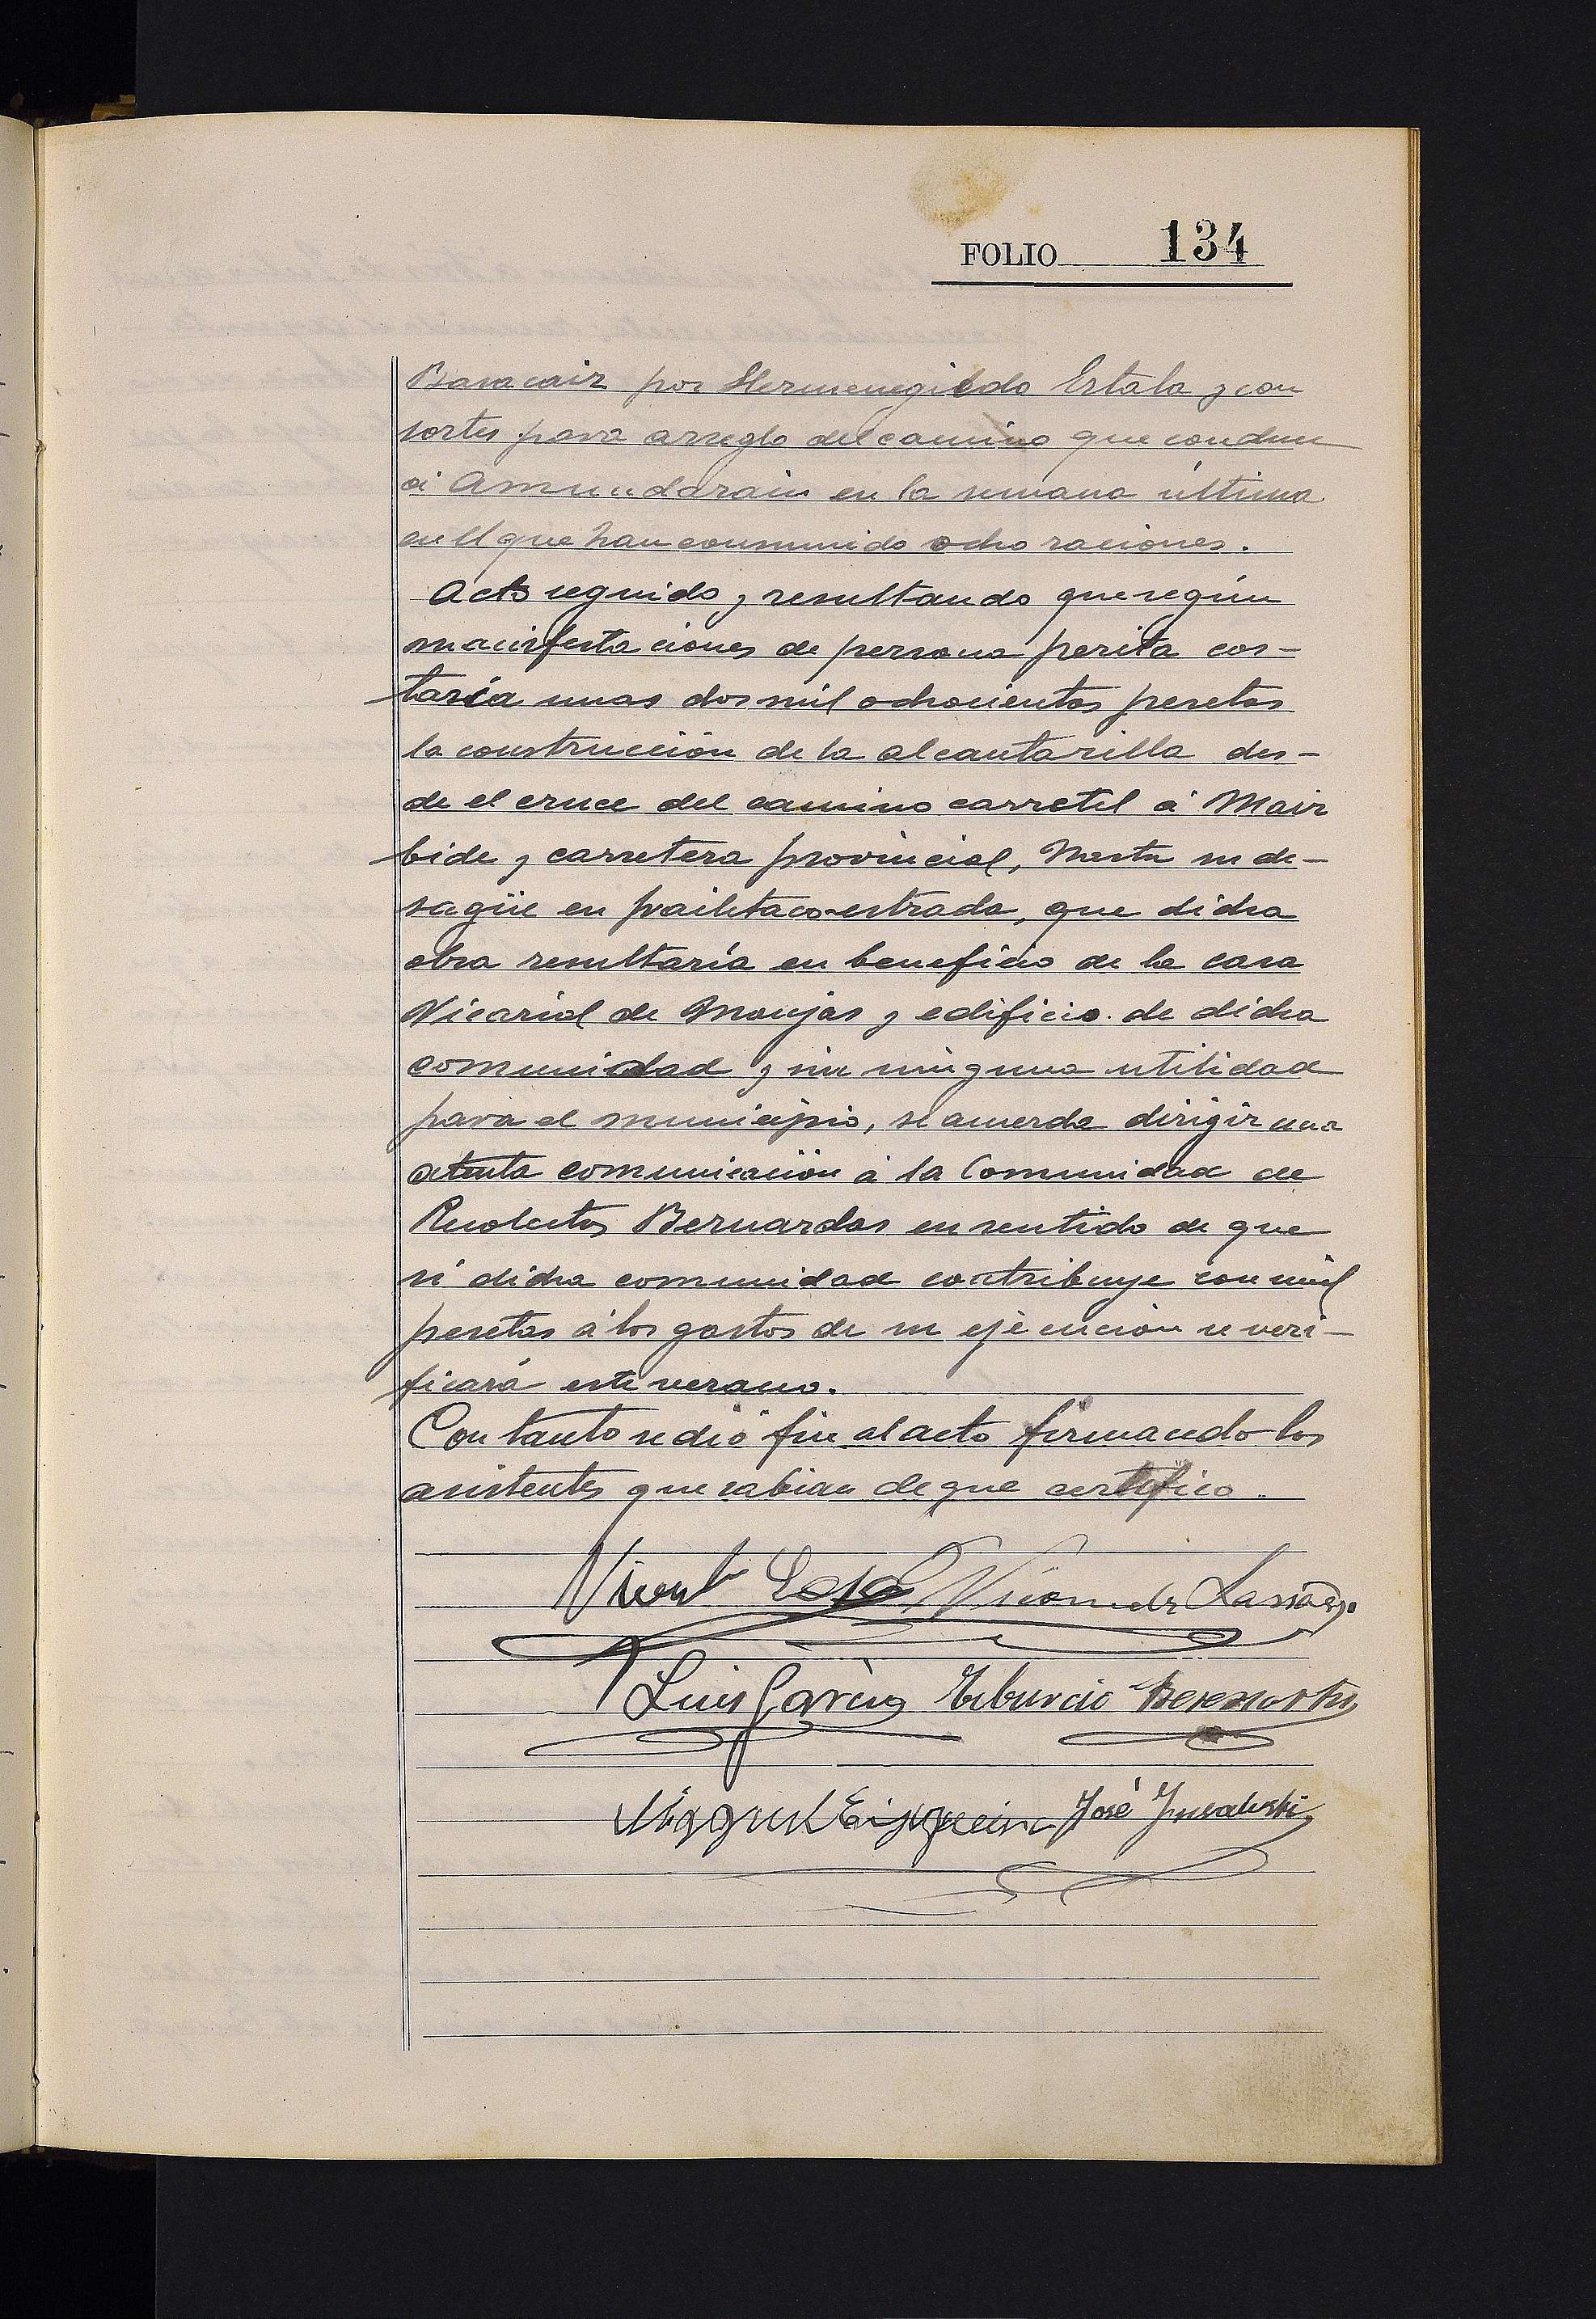 FOLIO 134
por Hermenegildo Estala y con
sortes para arreglo del camino que conduce
á Amundarain en la semana última
en el que han consumido ocho raciones.
Acto seguido y resultando que según
manifestaciones de persona perita cos-
taría unas dos mil ochocientas pesetas
la construcción de la alcantarilla des-
de el cruce del camino carretil á Mair
bide y carretera provincial, hasta su de-
sagüe en estrada, que dicha
obra resultaría en beneficio de la casa
Vicarial de Monjas y edificio de dicha
comunidad y sin ninguna utilidad
para el municipio, se acuerda dirigir una
atenta comunicación á la Comunidad de
Recoletas Bernardas en sentido de que
si dicha comunidad contribuye con mil
pesetas á los gastos de su ejecución se veri-
ficará este verano.
Con tanto se dió fin al acto firmando los
asistentes que sabian de que certifico.
Vicente
Luis García Tiburcio
Miguel José